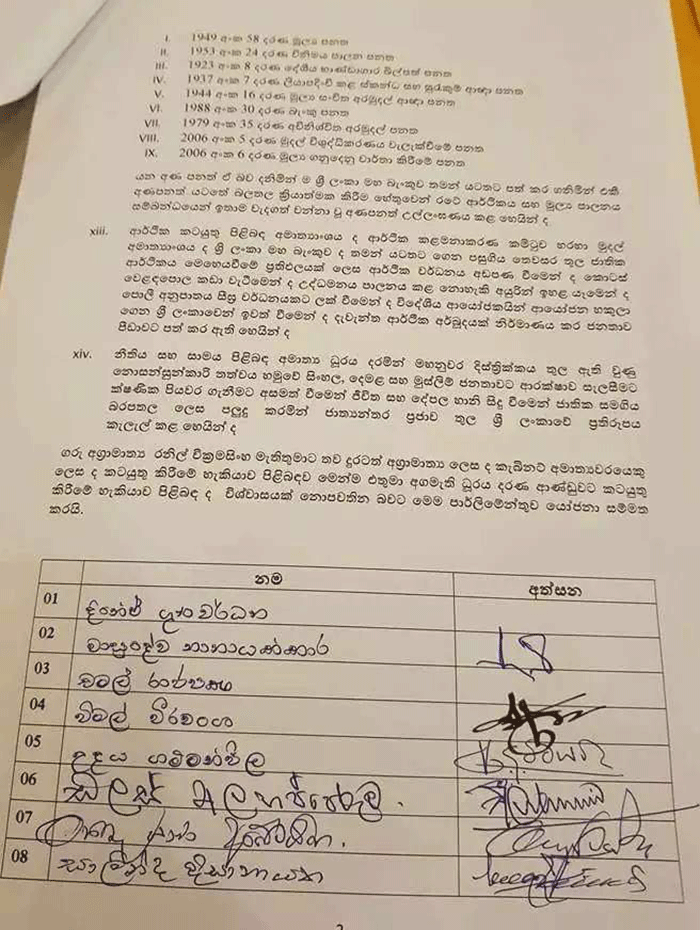 I. 1949 අංක 58 දරණ මුල්‍ය පනත
II. 1953 අංක 24 දරණ විනිමය පාලන පනත
III. 1923 අංක 8 දරණ දේශීය භාණ්ඩාගාර බිල්පත් පනත
IV. 1937 අංක 7 දරණ ලියාපදිංචි කළ ස්කන්ධ සහ සුරැකුම් ආඥා පනත
V. 1944 අංක 16 දරණ මුල්‍ය සංචිත අරමුදල් ආඥා පනත
VI. 1988 අංක 30 දරණ බැංකු පනත
VII. 1979 අංක 35 දරණ අවිනිශ්චිත අරමුදල් පනත
VIII. 2006 අංක 5 දරණ මුදල් විශුද්ධිකරණය වැලැක්වීමේ පනත
IX. 2006 අංක 6 දරණ මුල්‍ය ගනුදෙනු වාර්තා කිරීමේ පනත
යන අණ පනත් ඒ බව දනිමින් ම ශ්‍රී ලංකා මහ බැංකුව තමන් යටතට පත් කර ගනිමින් එකී
අණපනත් යටතේ බලතල ක්‍රියාත්මක කිරීම හේතුවෙන් රටේ ආර්ථිකය සහ මුල්‍ය පාලනය
සම්බන්ධයෙන් ඉතාම වැදගත් වන්නා වූ අණපනත් උල්ලංඝණය කළ හෙයින් ද
xiii. ආර්ථික කටයුතු පිළිබඳ අමාත්‍යාංශය ද ආර්ථික කළමනාකරණ කමිටුව හරහා මුදල්
අමාත්‍යාංශය ද ශ්‍රී ලංකා මහ බැංකුව ද තමන් යටතට ගෙන පසුගිය තෙවසර තුල ජාතික
ආර්ථිකය මෙහෙයවීමේ ප්‍රතිඵලයක් ලෙස ආර්ථික වර්ධනය අඩපණ වීමෙන් ද කොටස්
වෙළඳපොල කඩා වැටීමෙන් ද උද්ධමනය පාලනය කළ නොහැකි අයුරින් ඉහළ යෑමෙන් ද
පොලී අනුපාතය සීඝ්‍ර වර්ධනයකට ලක් වීමෙන් ද විදේශීය ආයෝජකයින් ආයෝජන හකුලා
ගෙන ශ්‍රී ලංකාවෙන් ඉවත් වීමෙන් ද දැවැන්ත ආර්ථික අර්බුදයක් නිර්මාණය කර ජනතාව
පීඩාවට පත් කර ඇති හෙයින් ද
xiv. නීතිය සහ සාමය පිළිබඳ අමාත්‍ය ධූරය දරමින් මහනුවර දිස්ත්‍රික්කය තුල ඇති වුණු
නොසන්සුන්කාරී තත්වය හමුවේ සිංහල, දෙමළ සහ මුස්ලිම් ජනතාවට ආරක්ෂාව සැලසීමට
ක්ෂණික පියවර ගැනීමට අසමත් වීමෙන් ජීවිත සහ දේපල හානි සිදු වීමෙන් ජාතික සමගිය
බරපතල ලෙස පලුදු කරමින් ජාත්‍යන්තර ප්‍රජාව තුල ශ්‍රී ලංකාවේ ප්‍රතිරූපය
කැලැල් කළ හෙයින් ද
ගරු අග්‍රාමාත්‍ය රනිල් වික්‍රමසිංහ මැතිතුමාට තව දුරටත් අග්‍රාමාත්‍ය ලෙස ද කැබිනට් අමාත්‍යවරයෙකු
ලෙස ද කටයුතු කිරීමේ හැකියාව පිළිබඳව මෙන්ම එතුමා අගමැති ධූරය දරණ ආණ්ඩුවට කටයුතු
කිරීමේ හැකියාව පිළිබඳ ද විශ්වාසයක් නොපවතින බවට මෙම පාර්ලිමේන්තුව යෝජනා සම්මත
කරයි.
නම අත්සන
01 දිනේෂ් ගුණවර්ධන
02 වාසුදේව නානායක්කාර
03 චමල් රාජපක්ෂ
04 විමල් වීරවංශ
05 උදය ගම්මන්පිල
06 ඩලස් අලහප්පෙරුම.
07
08